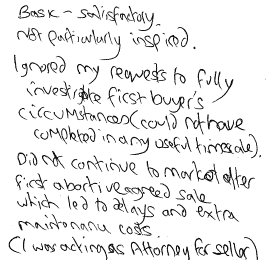 Basic - satisfactory.
Not particularly inspired.
Ignored my requests to fully
investigate first buyer's
circumstances (could not have
completed in any useful timescale).
Did not continue to market after
first abortive agreed sale
which led to delays and extra
maintenance costs.
(I was acting as Attorney for seller)